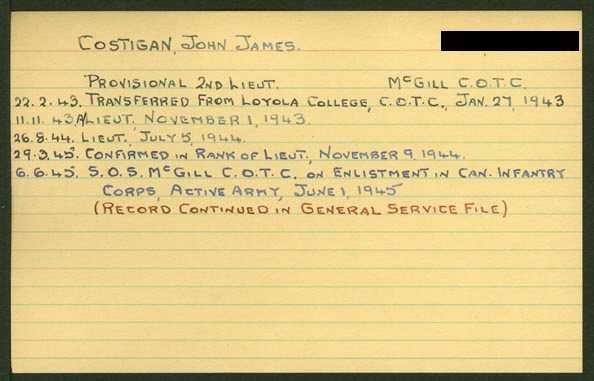 COSTIGAN, JOHN JAMES.
PROVISIONAL 2ND LIEUT. McGILL C.O.T.C.
22.2.43. TRANSFERRED FROM LOYOLA COLLEGE, C.O.T.C., JAN. 27, 1943
11.11.43. A/LIEUT. NOVEMBER 1, 1943.
26.8.44. LIEUT. JULY 5, 1944.
29.3.45. CONFIRMED IN RANK OF LIEUT., NOVEMBER 9, 1944.
6.6.45. S.O.S. McGILL C.O.T.C. ON ENLISTMENT IN CAN. INFANTRY
CORPS, ACTIVE ARMY, JUNE 1, 1945
(RECORD CONTINUED IN GENERAL SERVICE FILE)